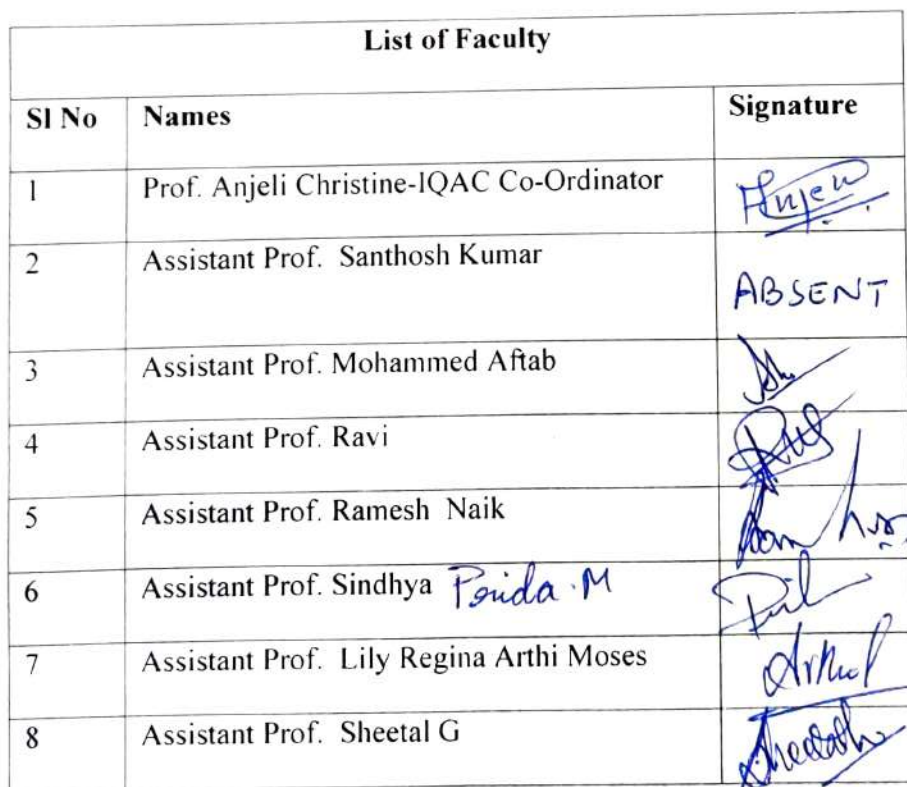 List of Faculty
Sl No Names Signature
1 Prof. Anjeli Christine-IQAC Co-Ordinator
2 Assistant Prof. Santhosh Kumar ABSENT
3 Assistant Prof. Mohammed Aftab
4 Assistant Prof. Ravi
5 Assistant Prof. Ramesh Naik
6 Assistant Prof. Sindhya M
7 Assistant Prof. Lily Regina Arthi Moses
8 Assistant Prof. Sheetal G